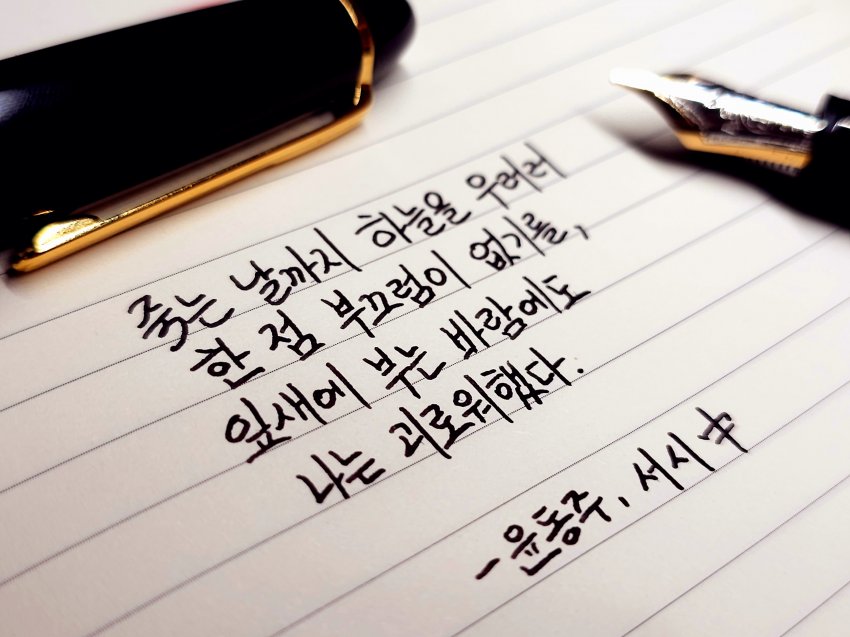 죽는 날까지 하늘을 우러러
한 점 부끄럼이 없기를,
잎새에 부는 바람에도
나는 괴로워했다.
- 윤동주, 서시 中